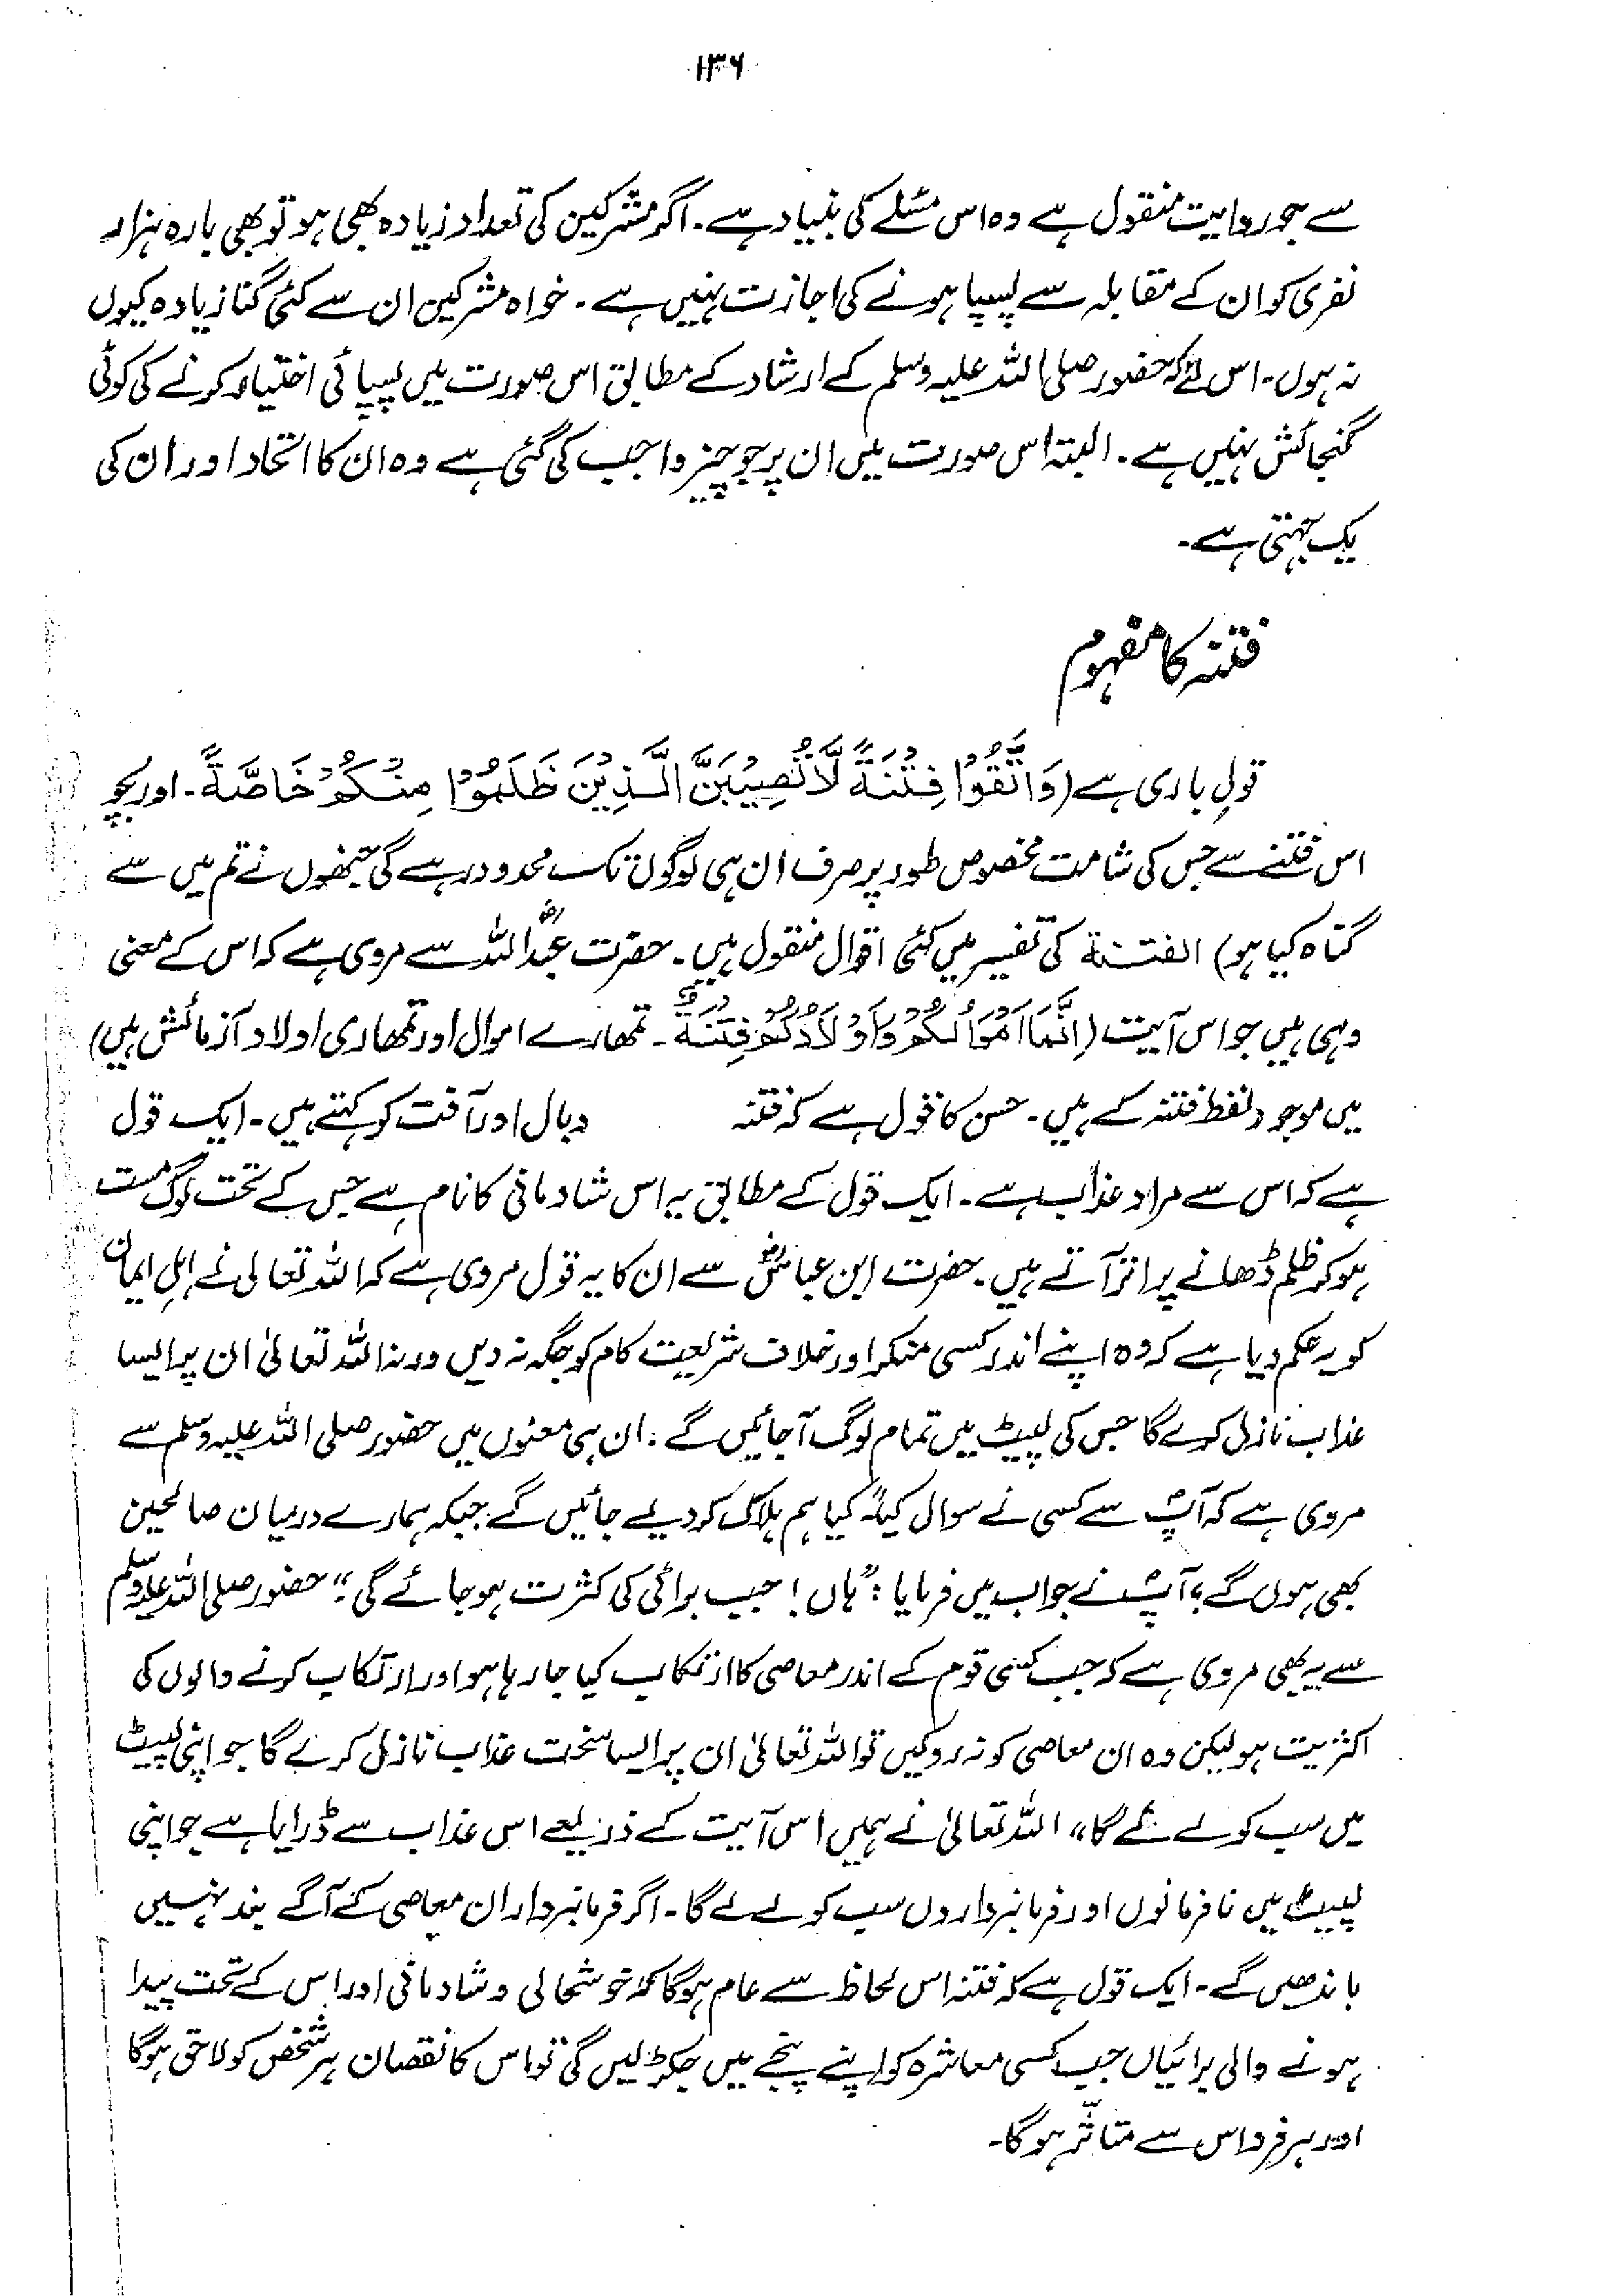 ۱۳۶
سے جو روایت منقول ہے وہ اس مسئلے کی بنیاد ہے۔ اگر مشرکین کی تعداد زیادہ بھی ہو تو بھی بارہ ہزار
نفری کو ان کے مقابلہ سے پسپا ہونے کی اجازت نہیں ہے۔ خواہ مشرکین ان سے کئی گنا زیادہ کیوں
نہ ہوں۔ اس لئے کہ حضور صلی اللہ علیہ وسلم کے ارشاد کے مطابق اس صورت میں پسپائی اختیار کرنے کی کوئی
گنجائش نہیں ہے۔ البتہ اس صورت میں ان پر جو چیز واجب کی گئی ہے وہ ان کا اتحاد اور ان کی
یک جہتی ہے۔
فتنہ کا مفہوم
قولِ باری ہے (وَاتَّقُوْا فِتْنَةً لَّا تُصِيْبَنَّ الَّذِيْنَ ظَلَمُوْا مِنْكُمْ خَاصَّةً۔ اور بچو
اس فتنے سے جس کی شامت مخصوص طور پر صرف ان ہی لوگوں تک محدود نہ رہے گی جنھوں نے تم میں سے
گناہ کیا ہو) الفتنة کی تفسیر میں کئی اقوال منقول ہیں۔ حضرت عبداللہؓ سے مروی ہے کہ اس کے معنی
وہی ہیں جو اس آیت (اِنَّمَا اَمْوَالُكُمْ وَاَوْلَادُكُمْ فِتْنَةٌ۔ تمھارے اموال اور تمھاری اولاد آزمائش ہیں)
میں موجود لفظ فتنہ کے ہیں۔ حسن کا قول ہے کہ فتنہ وبال اور آفت کو کہتے ہیں۔ ایک قول
ہے کہ اس سے مراد عذاب ہے۔ ایک قول کے مطابق یہ اس شادمانی کا نام ہے جس کے تحت لوگ مست
ہو کر ظلم ڈھانے پر اتر آتے ہیں۔ حضرت ابن عباسؓ سے ان کا یہ قول مروی ہے کہ اللہ تعالی نے اہلِ ایمان
کو یہ حکم دیا ہے کہ وہ اپنے اندر کسی منکر اور خلاف شریعت کام کو جگہ نہ دیں ورنہ اللہ تعالیٰ ان پر ایسا
عذاب نازل کرے گا جس کی لپیٹ میں تمام لوگ آجائیں گے۔ ان ہی معنوں میں حضور صلی اللہ علیہ وسلم سے
مروی ہے کہ آپؐ سے کسی نے سوال کیا "کیا ہم ہلاک کردیے جائیں گے جبکہ ہمارے درمیان صالحین
بھی ہوں گے؟ آپؐ نے جواب میں فرمایا: "ہاں! جب برائی کی کثرت ہو جائے گی"؛ حضور صلی اللہ علیہ وسلم
سے یہ بھی مروی ہے کہ جب کسی قوم کے اندر معاصی کا ارتکاب کیا جا رہا ہو اور ارتکاب کرنے والوں کی
اکثریت ہو لیکن وہ ان معاصی کو نہ روکیں تو اللہ تعالیٰ ان پر ایسا سخت عذاب نازل کرے گا جو اپنی لپیٹ
میں سب کو لے لے گا" اللہ تعالیٰ نے ہمیں اس آیت کے ذریعے اس عذاب سے ڈرایا ہے جو اپنی
لپیٹ میں نافرمانوں اور فرمانبرداروں سب کو لے لے گا۔ اگر فرمانبردار ان معاصی کے آگے بند نہیں
باندھیں گے۔ ایک قول ہے کہ فتنہ اس لحاظ سے عام ہوگا کہ خوشحالی و شادمانی اور اس کے تحت پیدا
ہونے والی برائیاں جب کسی معاشرہ کو اپنے پنجے میں جکڑ لیں گی تو اس کا نقصان ہر شخص کو لاحق ہوگا
اور ہر فرد اس سے متاثر ہوگا۔